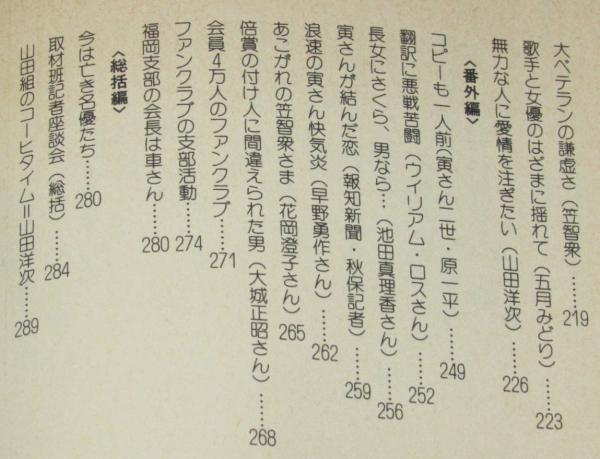 大ベテランの謙虚さ（笠智衆）……219
歌手と女優のはざまに揺れて（五月みどり）……223
無力な人に愛情を注ぎたい（山田洋次）……226
〈番外編〉
コピーも一人前（寅さん二世・原一平）……249
翻訳に悪戦苦闘（ウイリアム・ロスさん）……252
長女にさくら、男なら…（池田真理香さん）……256
寅さんが結んだ恋（報知新聞・秋保記者）……259
浪速の寅さん快気炎（早野勇作さん）……262
あこがれの笠智衆さま（花岡澄子さん）265
倍賞の付け人に間違えられた男（大城正昭さん）……268
会員4万人のファンクラブ……271
ファンクラブの支部活動……274
福岡支部の会長は車さん……280
〈総括編〉
今は亡き名優たち……280
取材班記者座談会（総括）……284
山田組のコーヒタイム＝山田洋次……289